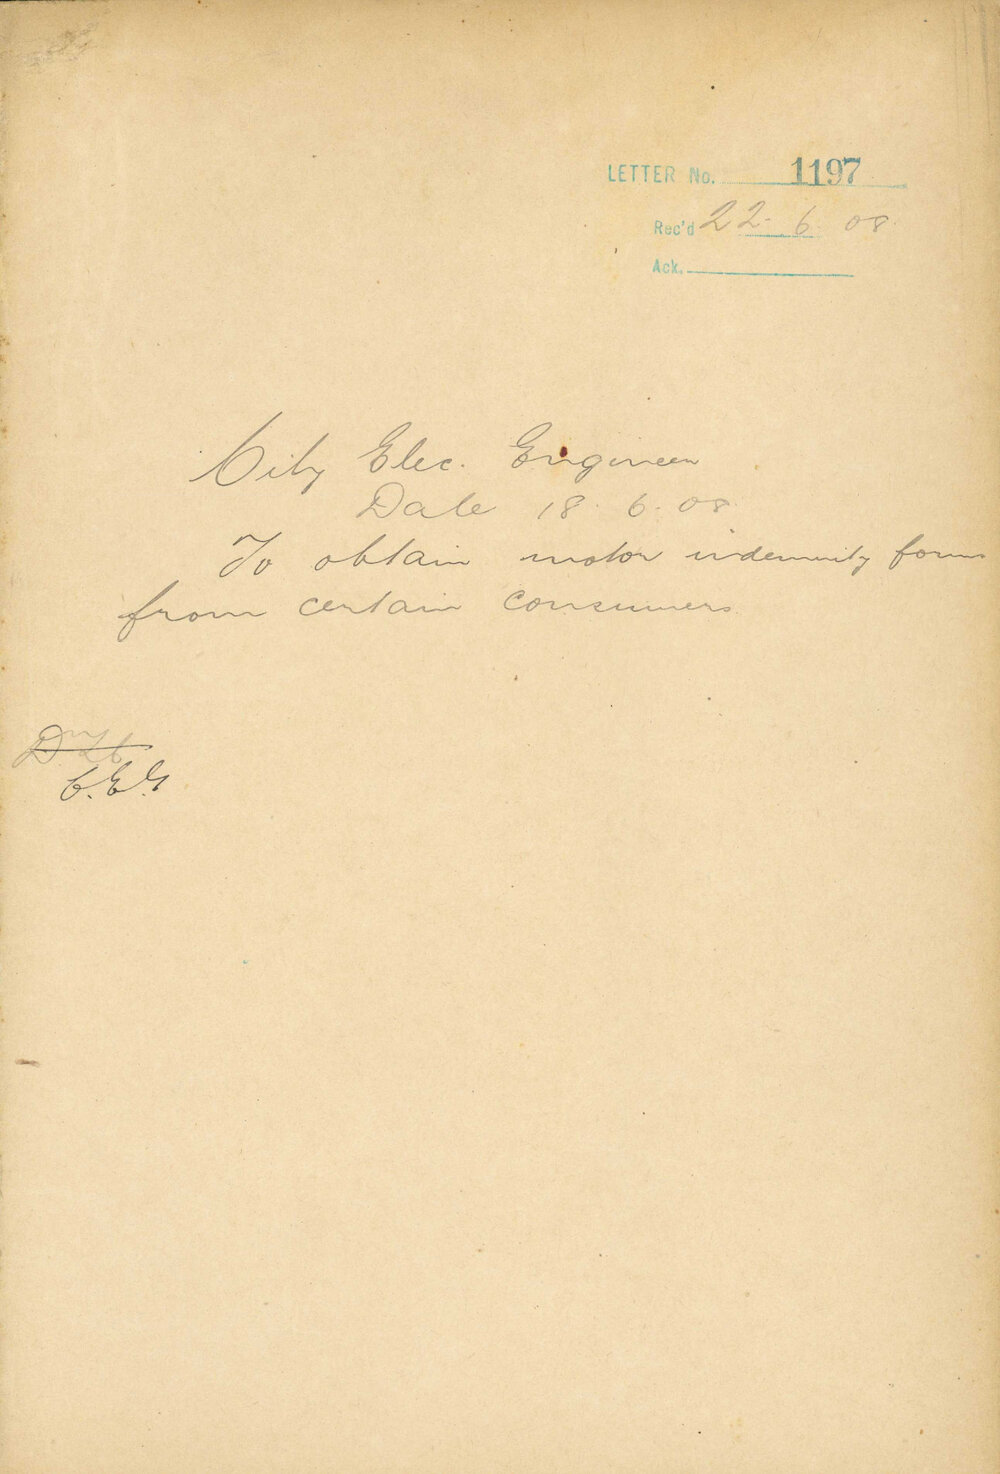 LETTER No. 1197
Rec'd 22. 6. 08.
Ack.
City Elec. Engineer
Date 18. 6. 08
To obtain motor indemnity forms
from certain consumers.
C.E.E